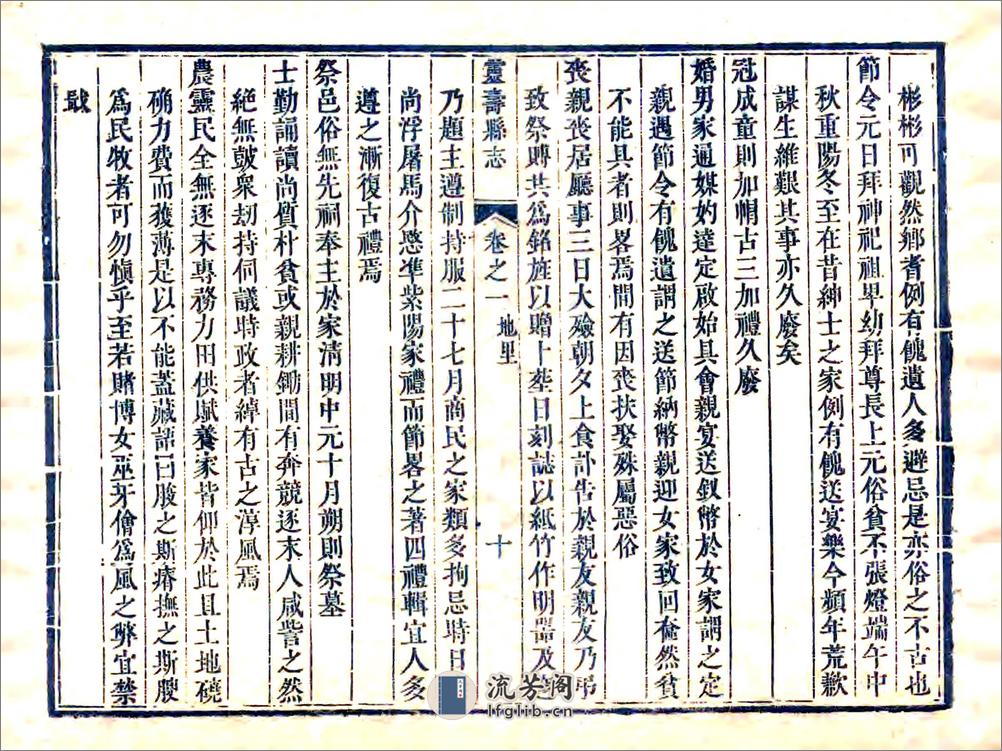 彬彬可觀然鄉者例有餽遺人多避忌是亦俗之不古也
節令元日拜神祀祖卑幼拜尊長上元俗貧不張燈端午中
秋重陽冬至在昔紳士之家例有餽送宴樂今頻年荒歉
謀生維艱其事亦久廢矣
冠成童則加帽古三加禮久廢
婚男家通媒妁達定啟始具會親宴送釵幣於女家謂之定
親遇節令有餽遺謂之送節納幣親迎女家致回奩然貧
不能具者則畧焉間有因喪扶娶殊屬惡俗
喪親喪居廳事三日大殮朝夕上食訃告於親友親友乃弔
致祭賻共爲銘旌以贈卜葬日刻誌以紙竹作明器及
靈壽縣志 卷之一 地里 十
乃題主遵制持服二十七月商民之家類多拘忌時日
尚浮屠馬介愍準紫陽家禮而節畧之著四禮輯宜人多
遵之漸復古禮焉
祭邑俗無先祠奉主於家清明中元十月朔則祭墓
士勤誦讀尚質朴貧或親耕鋤間有奔競逐末人咸訾之然
絕無鼓衆刧持伺議時政者綽有古之淳風焉
農靈民全無逐末專務力田供賦養家皆仰於此且土地磽
确力費而獲薄是以不能蓋藏諺曰朘之斯瘠撫之斯腴
爲民牧者可勿愼乎至若賭博女巫牙儈爲風之弊宜禁
戢
流芳閣
lfglib.cn